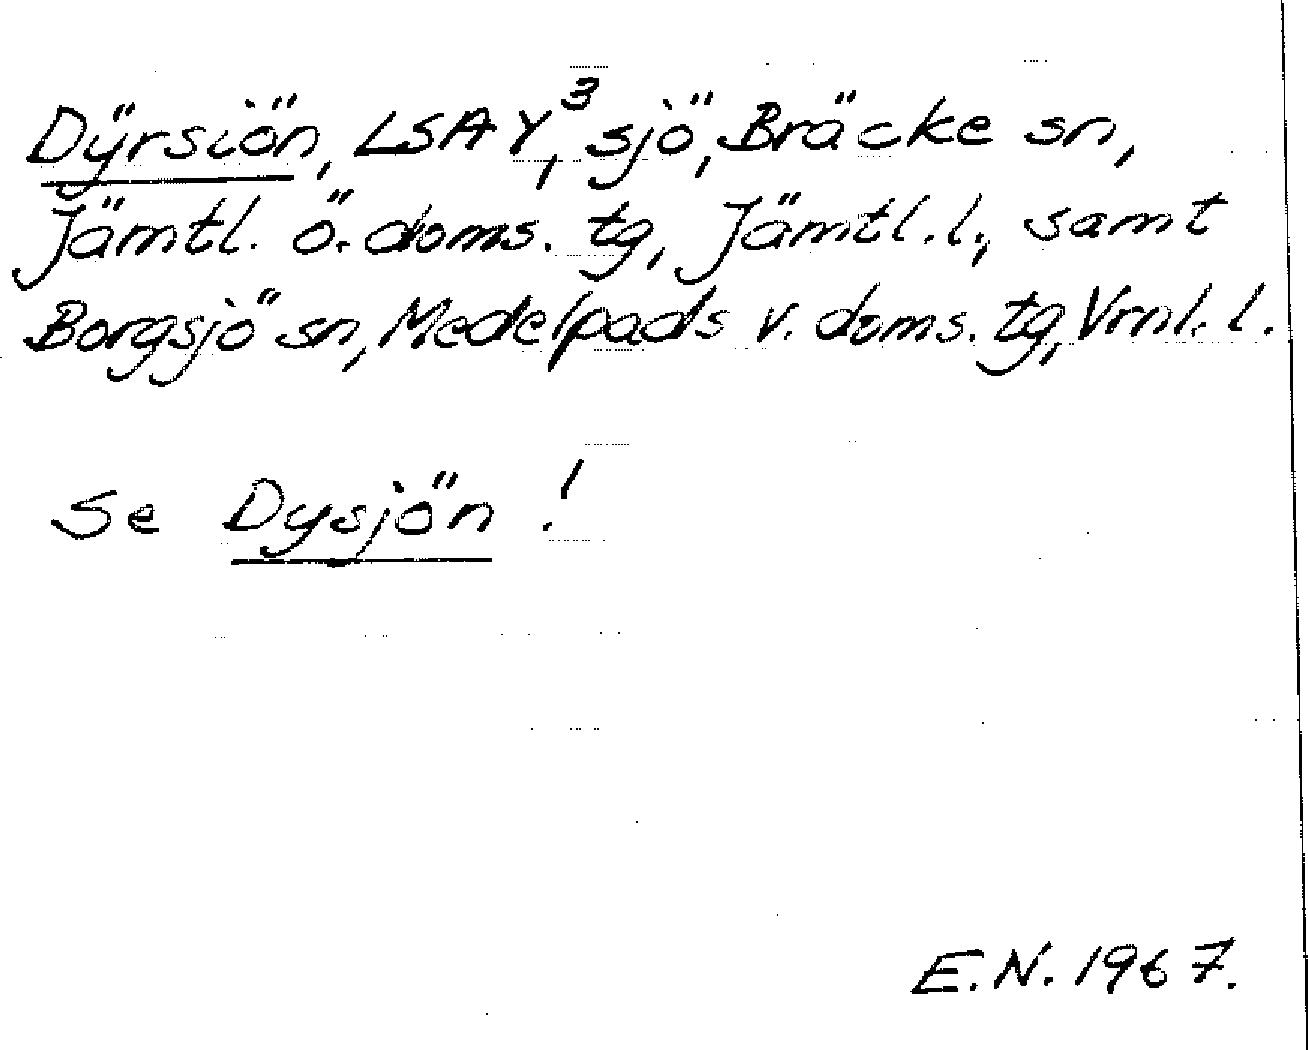 Dÿrsiön, LSA Y³, sjö, Bräcke sn,
Jämtl. ö. doms. tg, Jämtl. l., samt
Borgsjö sn, Medelpads v. doms. tg, Vrnl. l.
Se Dysjön!
E.N. 1967.